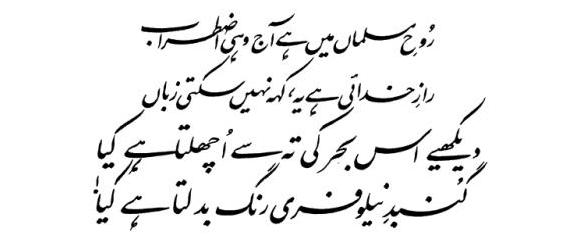 رُوحِ مسلماں میں ہے آج وہی اضطراب
رازِ خدائی ہے یہ، کہہ نہیں سکتی زباں
دیکھیے اس بحر کی تہ سے اُچھلتا ہے کیا
گُنبدِ نیلو فری رنگ بدلتا ہے کیا!